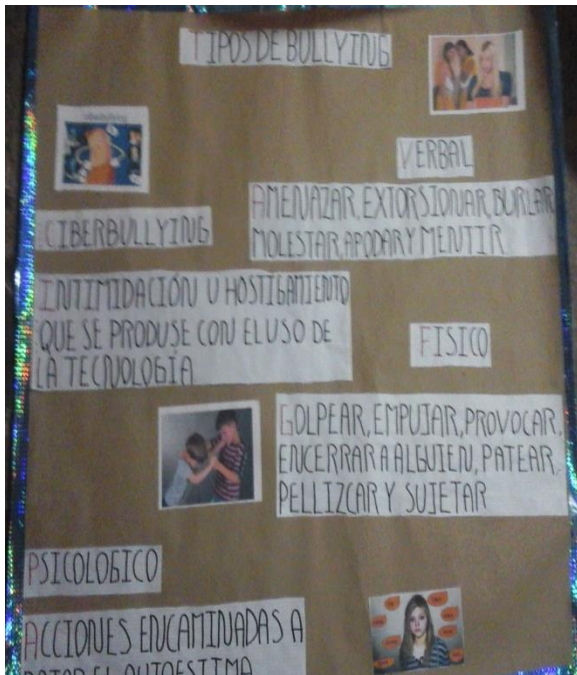 TIPOS DE BULLYING
VERBAL
AMENAZAR, EXTORSIONAR, BURLAR,
MOLESTAR, APODAR Y MENTIR
CIBERBULLYING
INTIMIDACIÓN U HOSTIGAMIENTO
QUE SE PRODUSE CON EL USO DE
LA TECNOLOGÍA
FISICO
GOLPEAR, EMPUJAR, PROVOCAR,
ENCERRAR A ALGUIEN, PATEAR,
PELLIZCAR Y SUJETAR
PSICOLOGICO
ACCIONES ENCAMINADAS A
BAJAR EL AUTOESTIMA